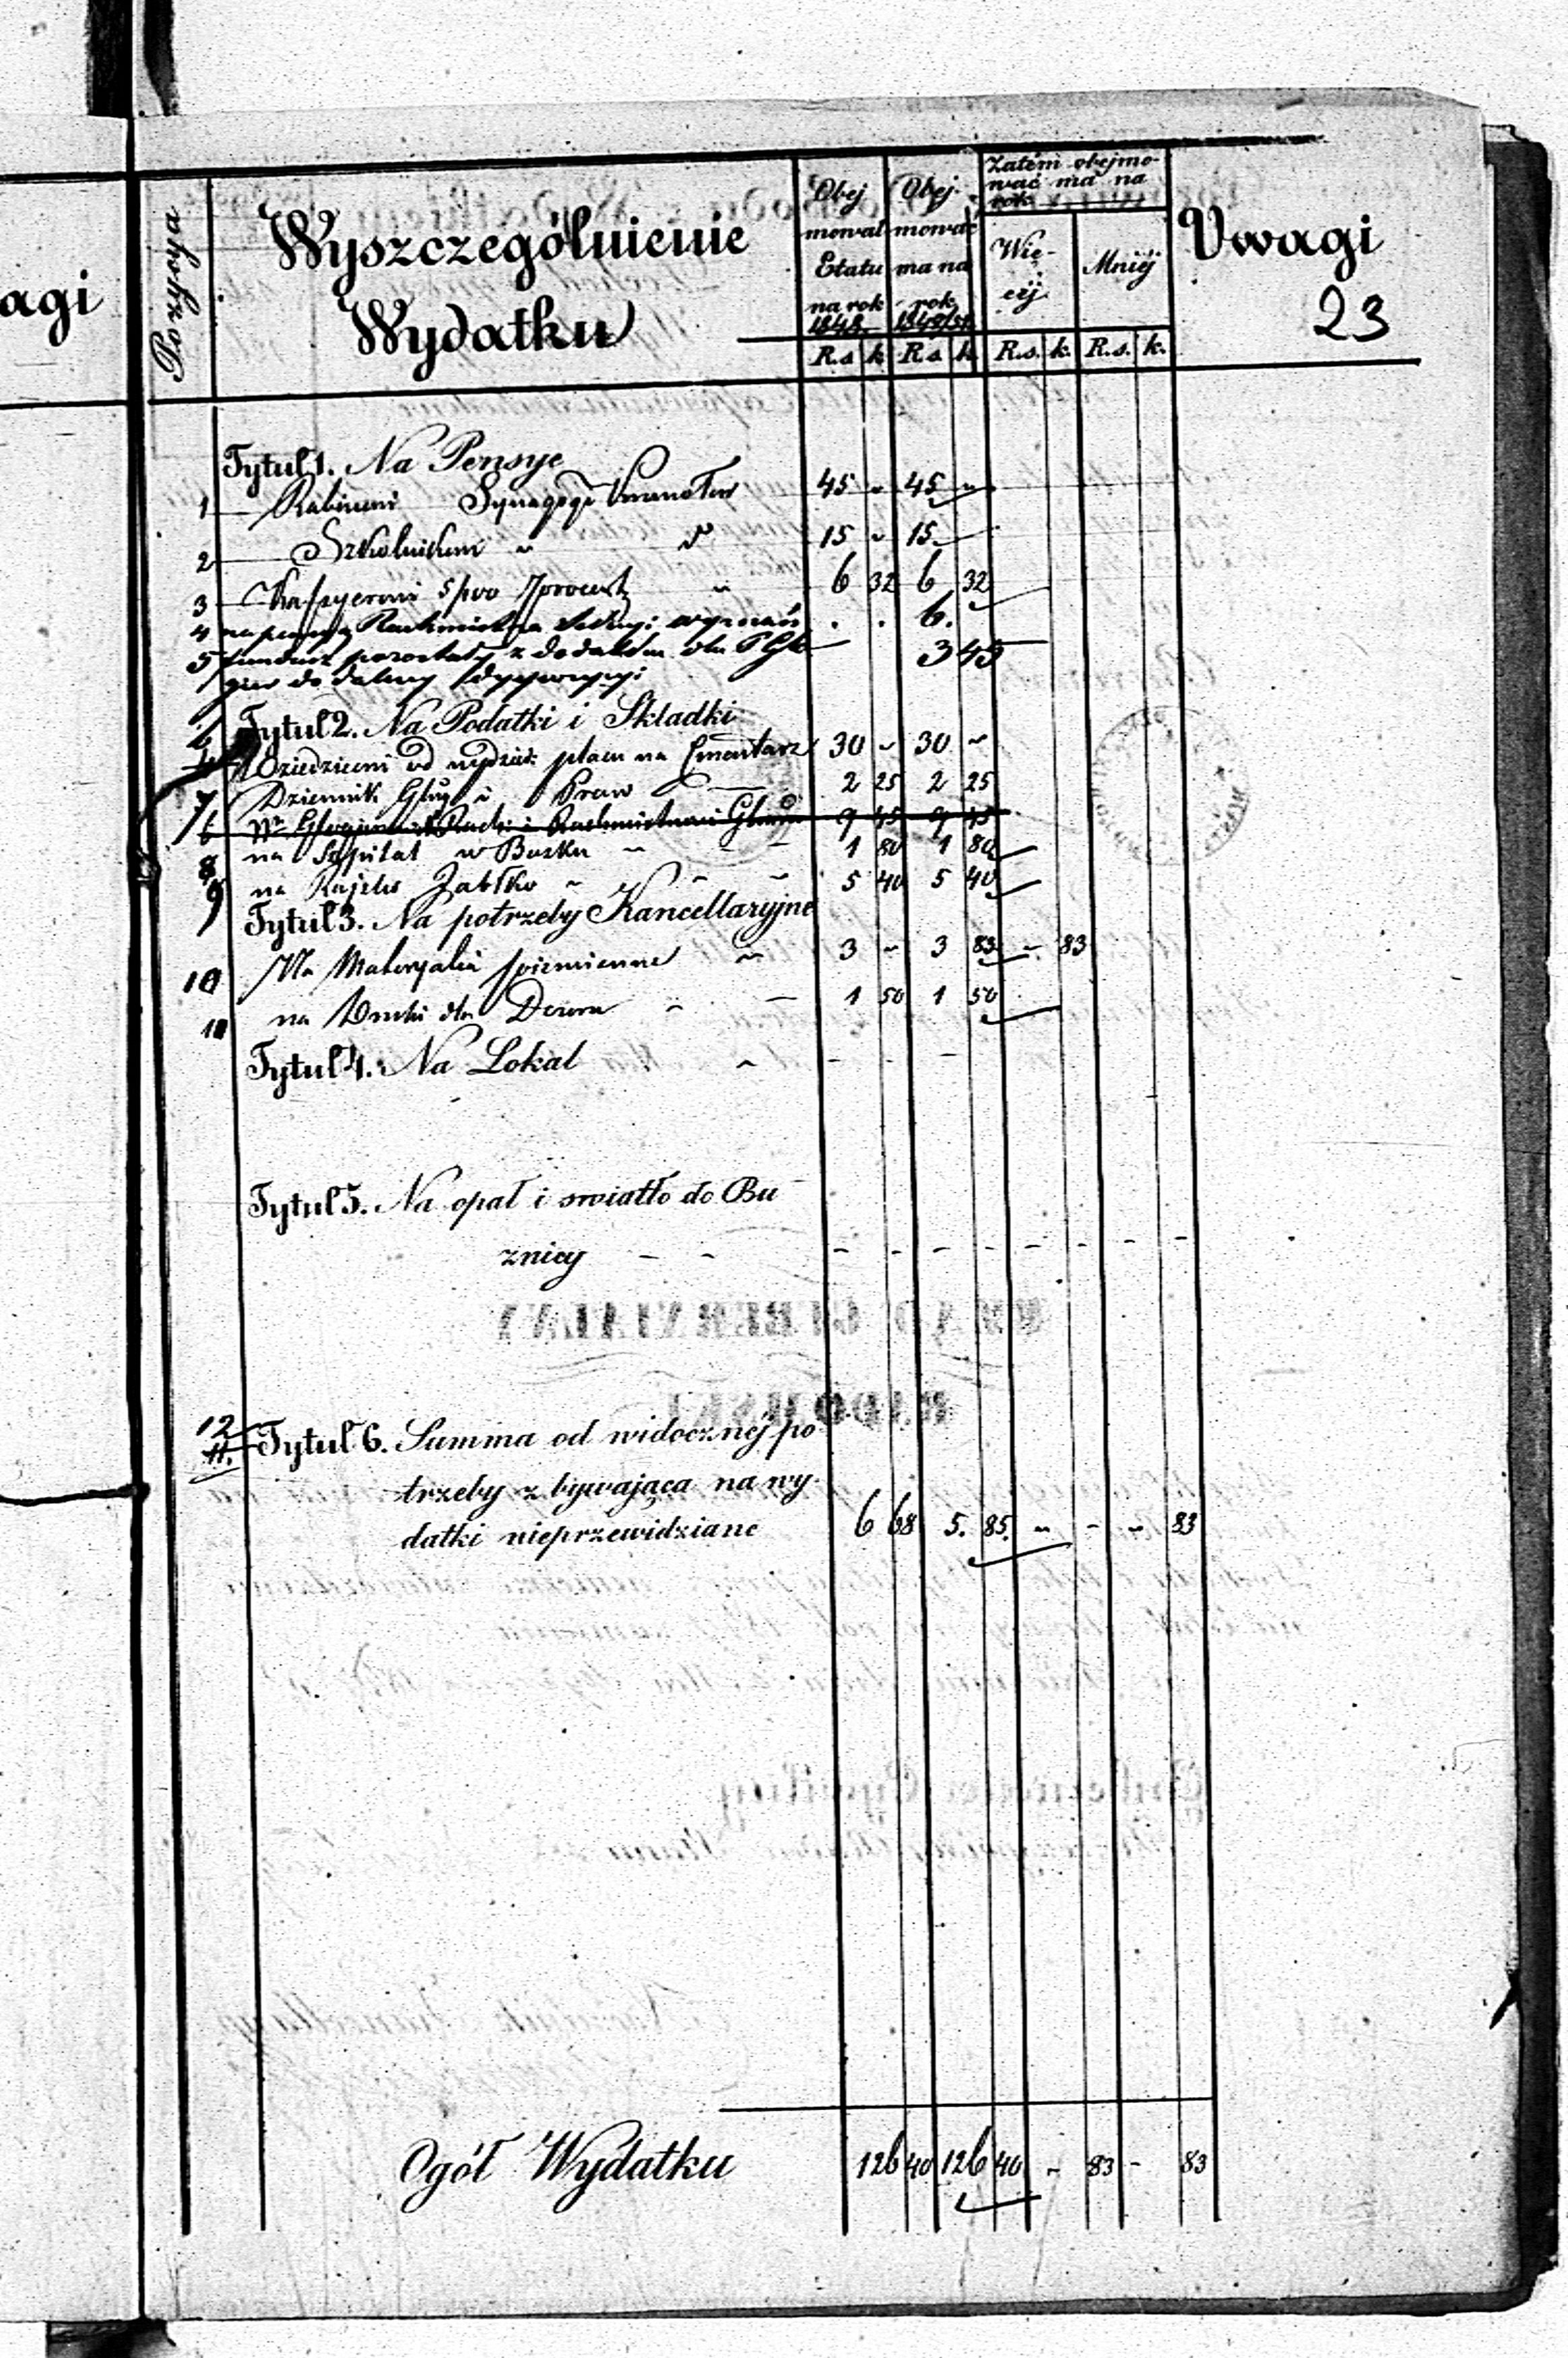 agi
Pozycya
Wyszczególnienie
Wydatku
Obej
mował
Etatu
na rok
1848
Obej-
mować
ma na
rok
1849/51
Zatém obejmo-
wać ma na
rok
Wię-
céj
Mniéj
Uwagi
23
R.s k R.s k. R.s. k. R.s. k.
Tytuł 1. Na Pensye
1 Rabinowi Synagogi 45 - 45 -
2 Szkolnikowi " 15 - 15
3 Kassyerowi 5 pro " 6 32 6 32
4 na pensyą . . 6.
5 fundusz pozostały z dodatków dla 3 45
do dalszey dyspozycyi
6 Tytuł 2. Na Podatki i Składki
4 Dziedzicowi od placu na Cmentarz 30 - 30 -
7 Dziennik Praw 2 25 2 25
6 9 45 9 45
8 na Szpital w Busku 1 80 1 80
9 na 5 40 5 40
Tytuł 3. Na potrzeby Kancellaryjne
10 Na Materyalia piśmienne 3 - 3 83 - 83
11 na Druki dla Dozoru 1 50 1 50
Tytuł 4. Na Lokal - - -
Tytuł 5. Na opał i swiatło do Bu
znicy - - - - - - - - - -
12
11. Tytuł 6. Summa od widocznéj po
trzeby zbywająca na wy-
datki nieprzewidziane 6 68 5. 85. - - - 83
Ogół Wydatku 126 40 126 40 - 83 - 83